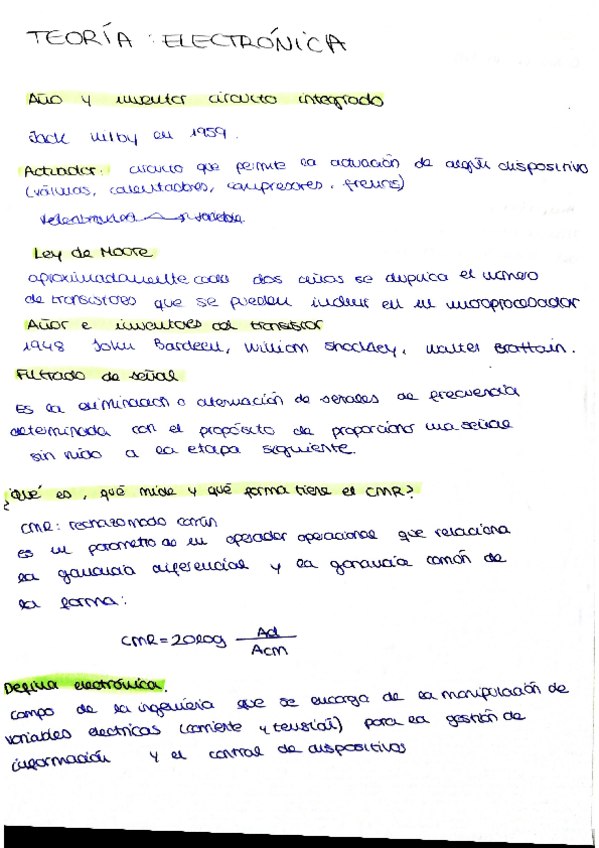 TEORÍA : ELECTRÓNICA
Año y inventor circuito integrado
Jack Kilby en 1959.
Actuador: circuito que permite la actuación de algún dispositivo
(válvulas, calentadores, compresores, frenos)
Ley de Moore
aproximadamente cada dos años se duplica el número
de transistores que se pueden incluir en un microprocesador
Años e inventores del transistor
1948 John Bardeen, William Shockley, Walter Brattain.
Filtrado de señal
Es la eliminación o atenuación de señales de frecuencia
determinada con el propósito de proporcionar una señal
sin ruido a la etapa siguiente.
¿Qué es, qué mide y qué forma tiene el CMR?
CMR: rechazo modo común
es un parámetro de un operador operacional que relaciona
la ganancia diferencial y la ganancia común de
la forma:
CMR = 20log Ad
Acm
Defina electrónica.
campo de la ingeniería que se encarga de la manipulación de
variables electricas (corriente y tensión) para la gestión de
información y el control de dispositivos